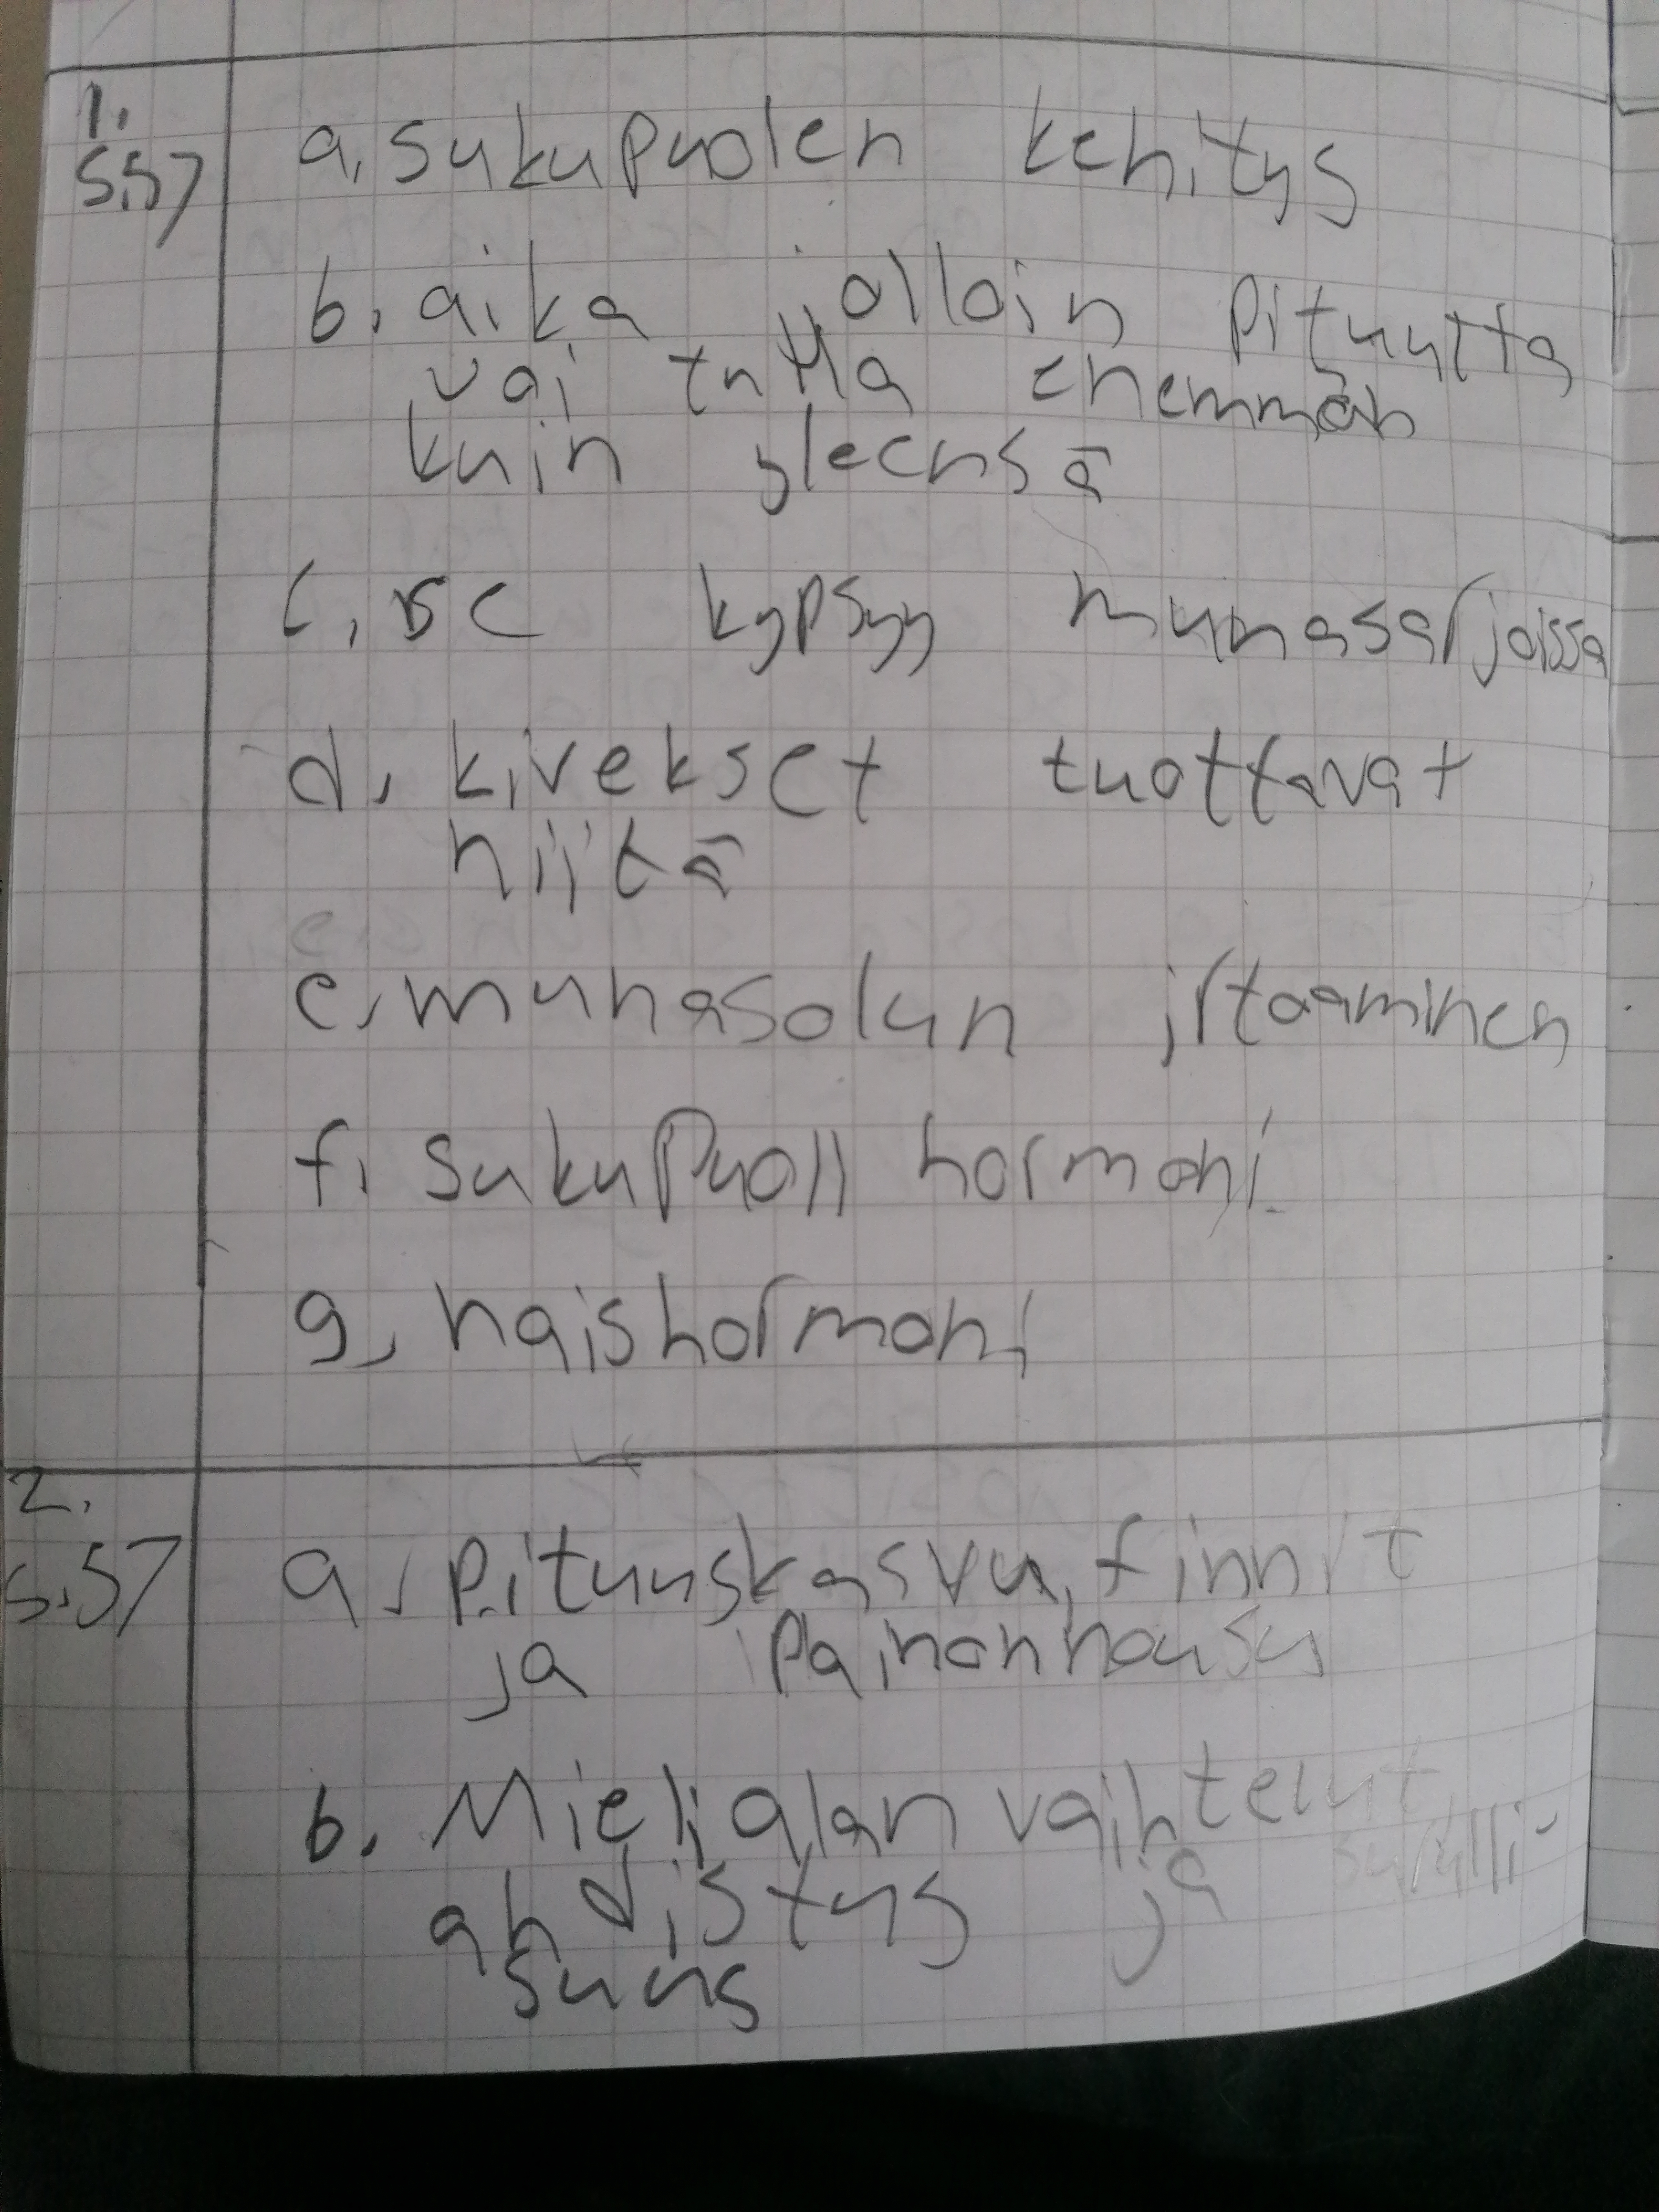 1.
s.57
a, sukupuolen kehitys
b, aika jolloin pituutta
voi tulla enemmän
kuin yleensä
c, se kypsyy munasarjoissa
d, kivekset tuottavat
niitä
e, munasolun irtoaminen
f, sukupuoli hormoni
g, naishormoni
2.
s.57
a, pituuskasvu, finnit
ja painonnousu
b. Mielialan vaihtelut
ahdistus ja surulli-
suus